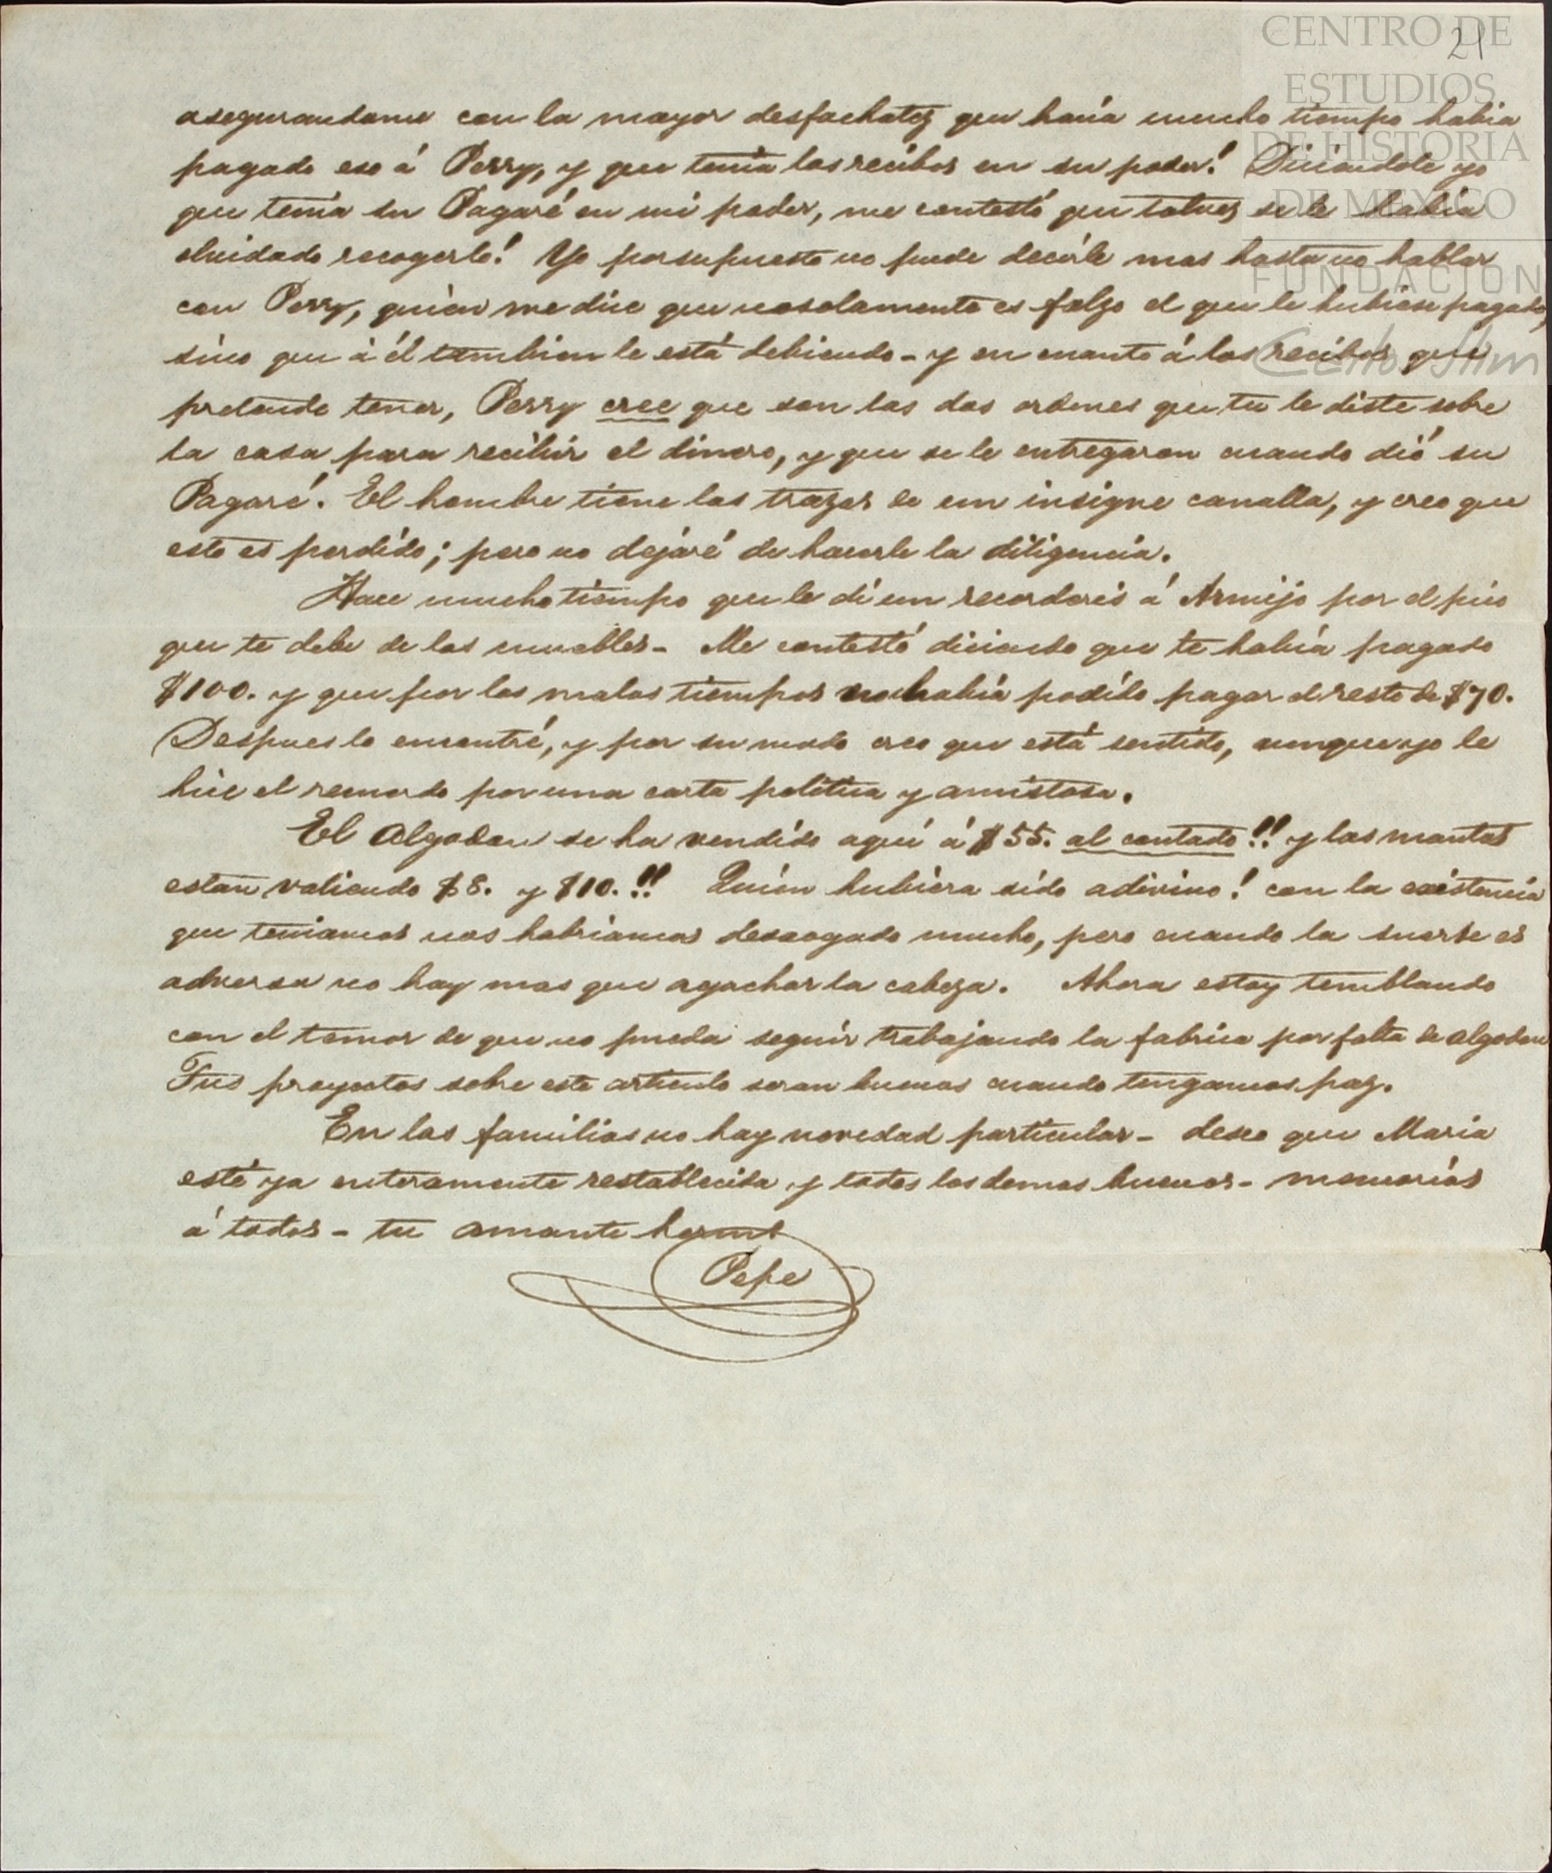 CENTRO DE
ESTUDIOS
DE HISTORIA
DE MEXICO
FUNDACION
Carlos Slim
21
asegurandome con la mayor desfachatez que hacía mucho tiempo habia
pagado eso á Perry, y que tenía los recibos en su poder! Diciendole yo
que tenía su Pagaré en mi poder, me contestó que talvez se le había
olvidado recogerlo! Yo porsupuesto no pude decirle mas hasta no hablar
con Perry, quien me dice que nosolamente es falzo el que le hubiese pagado,
sino que á él tambien le está debiendo - y en cuanto á los recibos que
pretende tener, Perry cree que son las dos ordenes que tu le diste sobre
la casa para recibir el dinero, y que se le entregaron cuando dió su
Pagaré. El hombre tiene las trazas de un insigne canalla, y creo que
esto es perdido; pero no dejaré de hacerle la diligencia.
Hace mucho tiempo que le dí un recorderis á Armijo por el pico
que te debe de los muebles - Me contestó diciendo que te había pagado
$100. y que por los malos tiempos no había podido pagar el resto de $70.
Despues lo encontré, y por su modo creo que está sentido, aunque yo le
hice el recuerdo por una carta politica y amistosa.
El Algodon se ha vendido aquí á $55. al contado!! y las mantas
estan valiendo $8. y $10.!! Quién hubiera sido adivino! con la existencia
que teniamos nos habriamos desaogado mucho, pero cuando la suerte es
adversa no hay mas que agachar la cabeza. Ahora estoy temblando
con el temor de que no pueda seguir trabajando la fabrica por falta de algodon
Tus proyectos sobre este articulo seran buenos cuando tengamos paz.
En las familias no hay novedad particular - deseo que Maria
esté ya enteramente restablecida y todos los demas buenos - memorias
á todos - tu amante hermo
Pepe